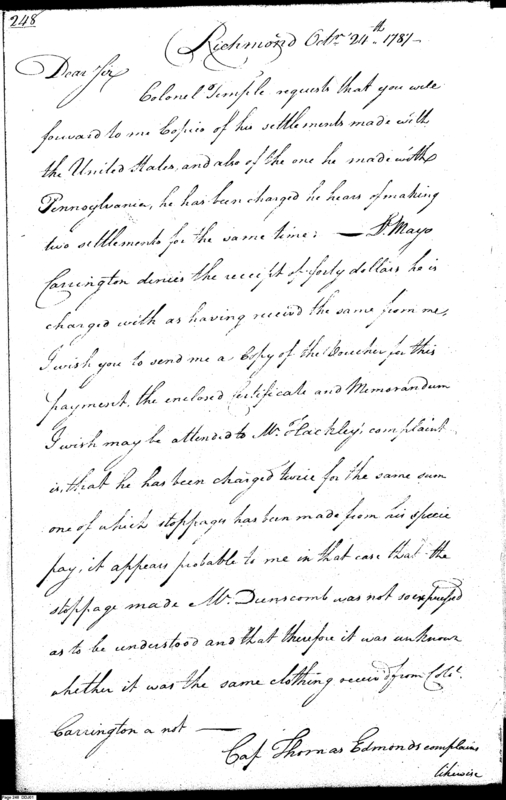 248
Richmond Octr. 24th. 1787
Dear Sir
Colonel Temple requests that you will
forward to me Copies of his settlements made with
the United States, and also of the one he made with
Pennsylvania, he has been charged he hears of making
two settlements for the same time; — Mayo
Carrington denies the receipt of forty dollars he is
charged with as having receivd the same from me,
I wish you to send me a Copy of the Voucher for this
payment, the enclosed Certificate and Memorandum
I wish may be attended to Mr. Hackley's complaint
is, that he has been charged twice for the same sum
one of which stoppages has been made from his specie
pay, it appears probable to me in that case that the
stoppage made Mr. Dunscomb was not so expressed
as to be understood and that therefore it was unknown
whether it was the same clothing receivd from Colo.
Carrington a not —
Cap Thomas Edmonds complains
likewise
Page 248